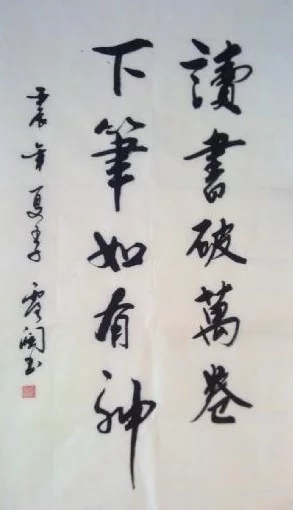 讀書破萬卷
下筆如有神
壬辰年夏季